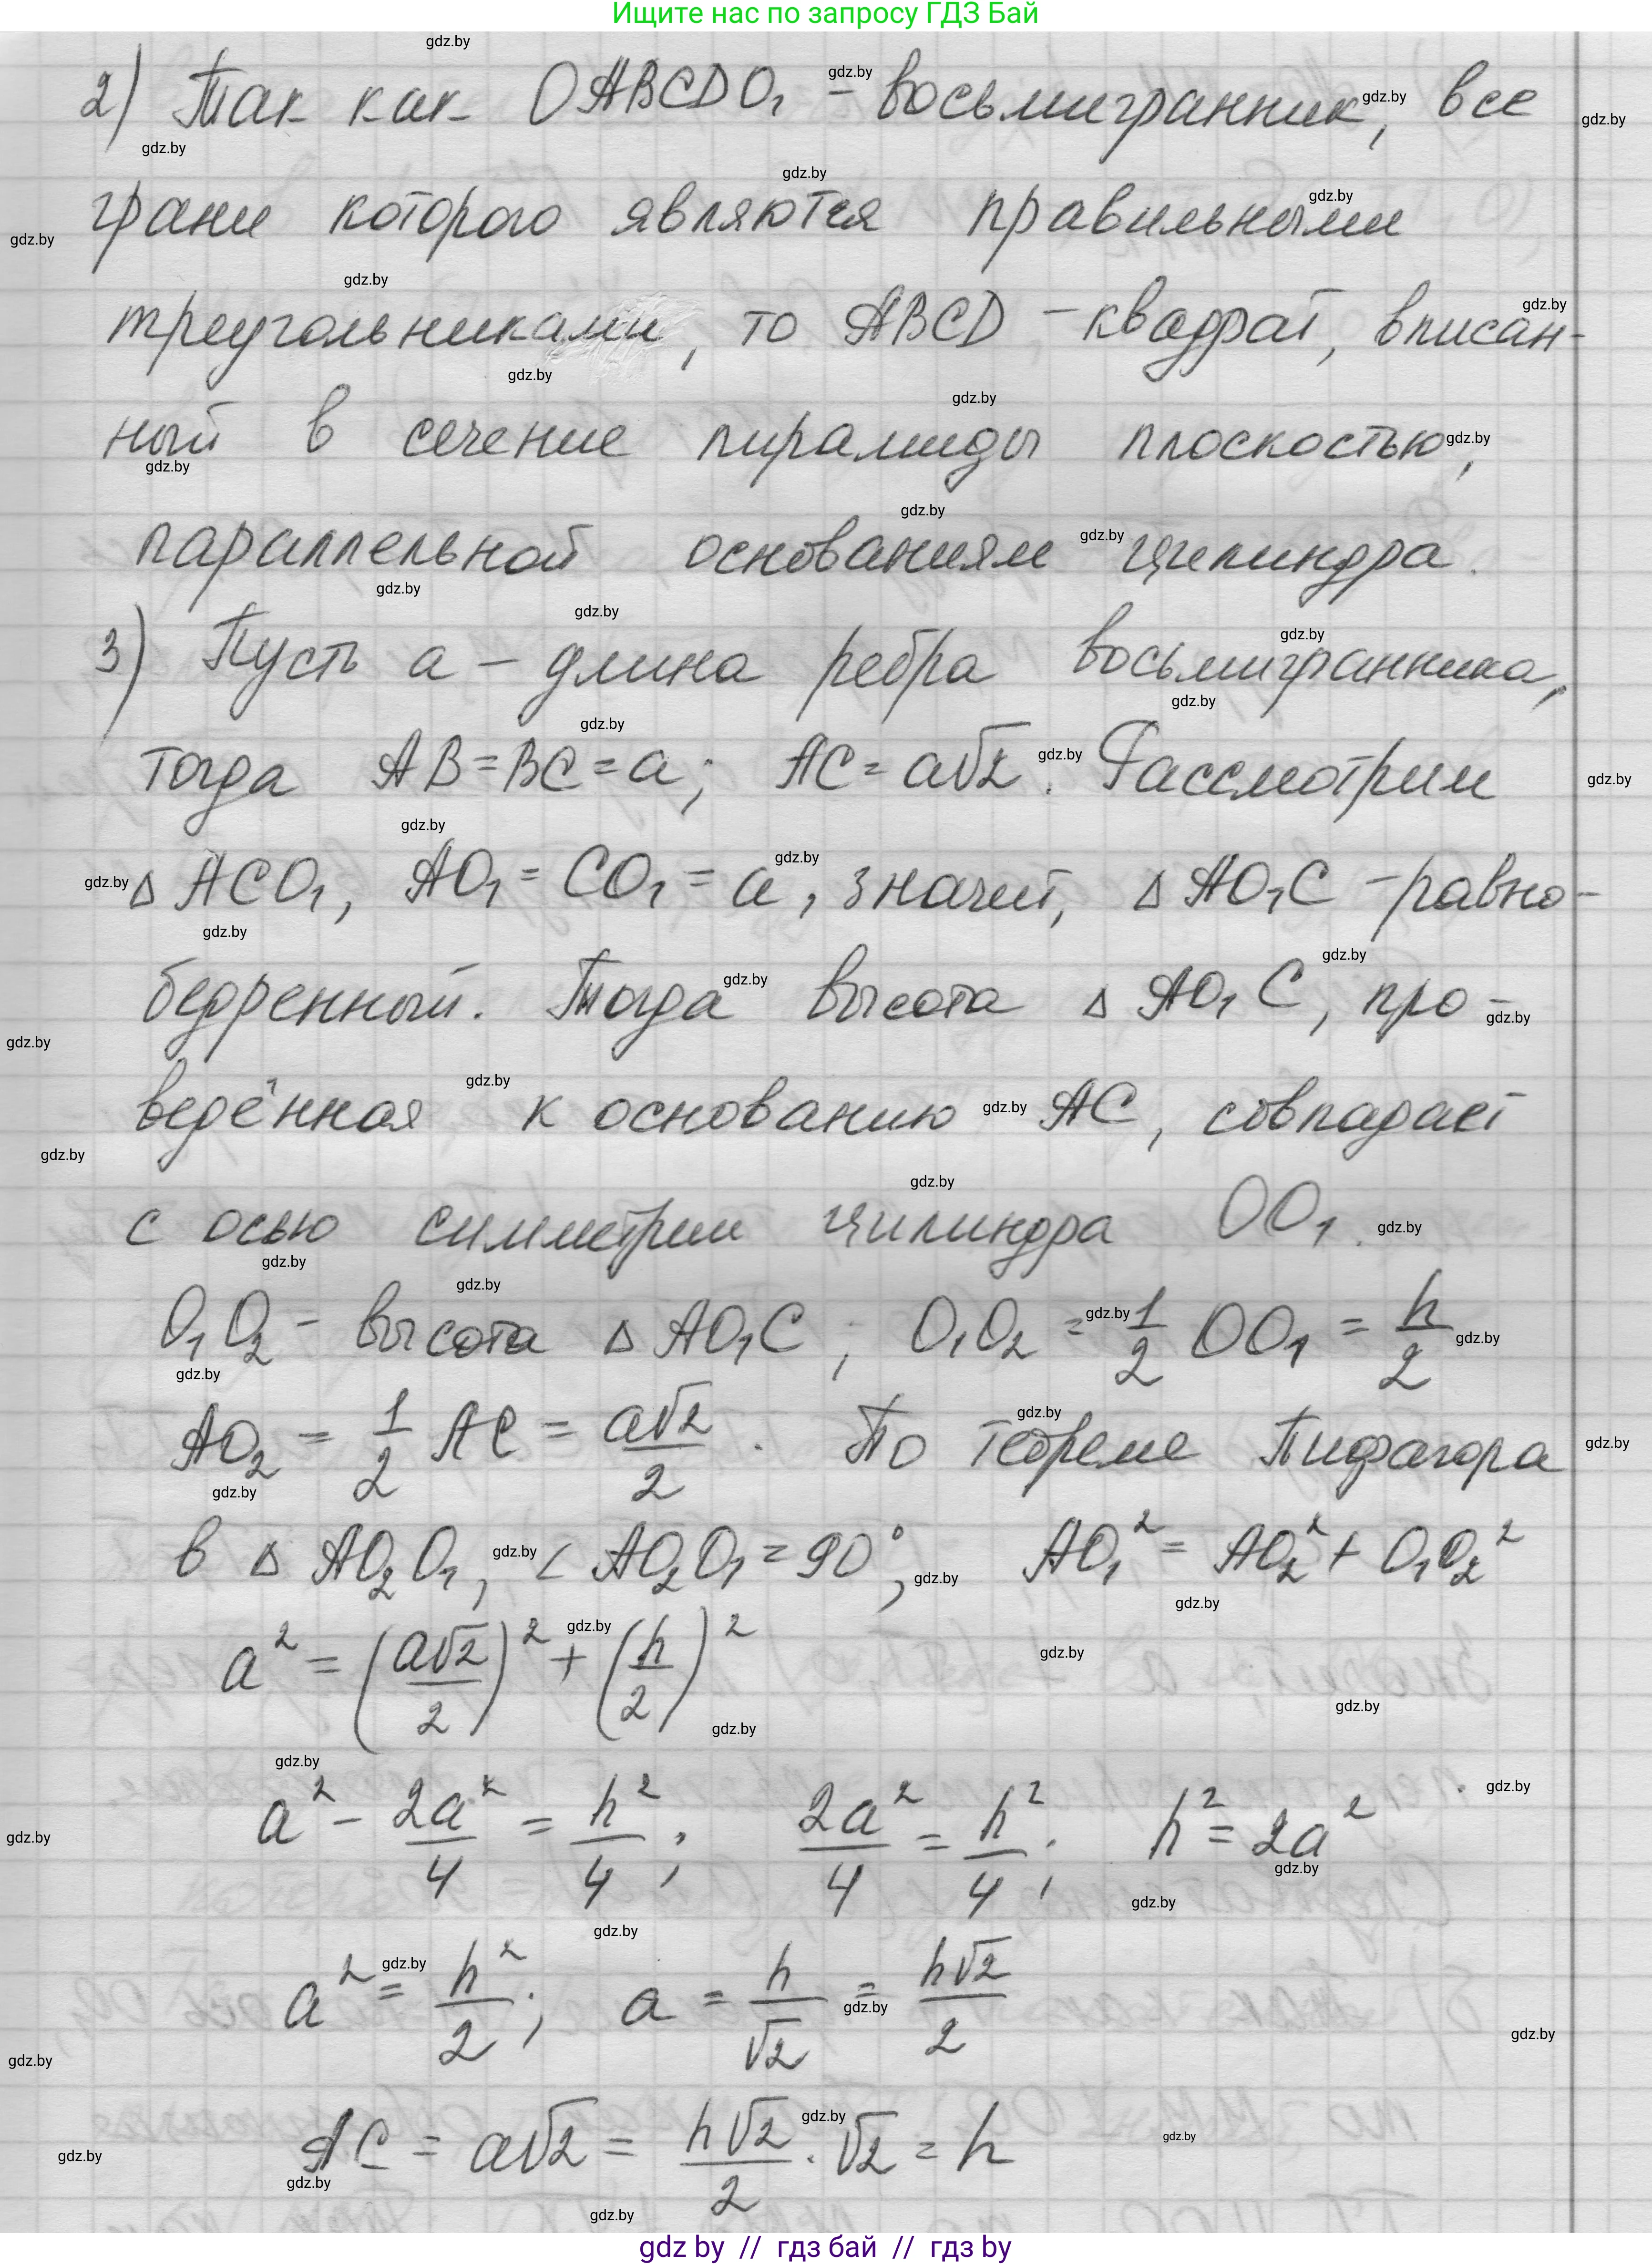 Ищите нас по запросу ГДЗ Бай
2) Так как OABCDO₁ - восьмигранник, все
грани которого являются правильными
треугольниками, то ABCD - квадрат, вписан-
ный в сечение пирамиды плоскостью,
параллельной основаниям цилиндра.
3) Пусть a - длина ребра восьмигранника,
тогда AB = BC = a; AC = a√2. Рассмотрим
△ ACO₁, AO₁ = CO₁ = a, значит, △ AO₁C - равно-
бедренный. Тогда высота △ AO₁C, про-
ведённая к основанию AC, совпадает
с осью симметрии цилиндра OO₁.
O₁O₂ - высота △ AO₁C; O₁O₂ = 1/2 OO₁ = h/2
AO₂ = 1/2 AC = a√2/2. По теореме Пифагора
в △ AO₂O₁, < AO₂O₁ = 90°, AO₁² = AO₂² + O₁O₂²
a² = (a√2/2)² + (h/2)²
a² - 2a²/4 = h²/4; 2a²/4 = h²/4; h² = 2a²
a² = h²/2; a = h/√2 = h√2/2
AC = a√2 = h√2/2 · √2 = h
gdz by // гдз бай // гдз by